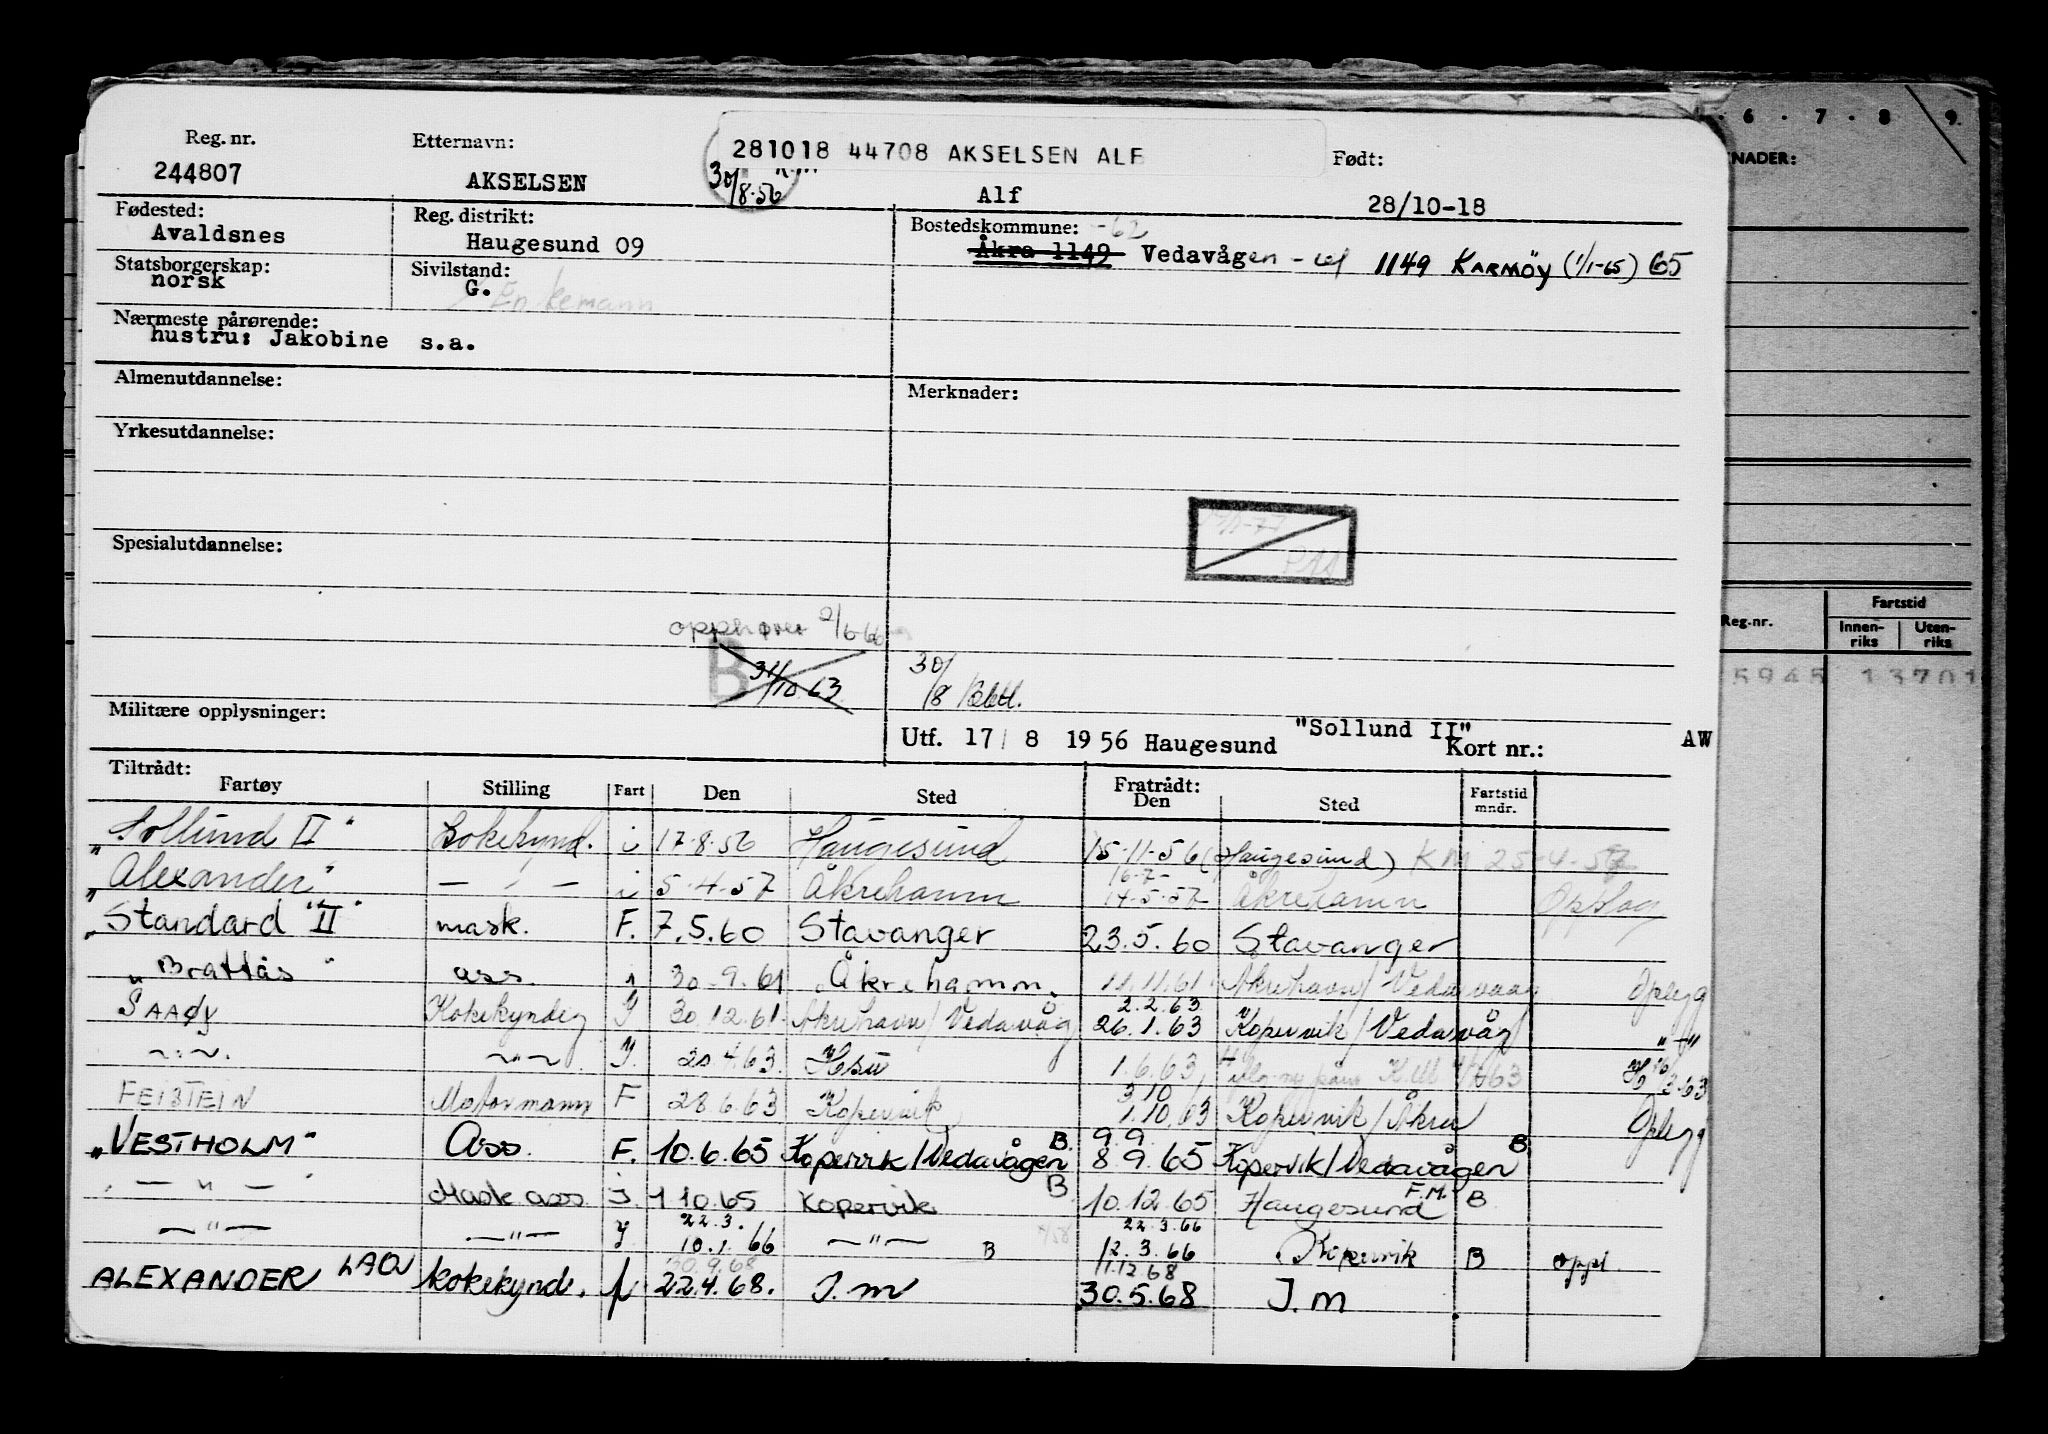 6 · 7 · 8 9.
Reg. nr. Etternavn: 281018 44708 AKSELSEN ALF Født:
244807 AKSELSEN 30/8-56 Alf 28/10-18
NADER:
Fødested: Reg. distrikt: Bostedskommune: -62
Avaldsnes Haugesund 09 Åkra 1149 Vedavågen - 1149 KARMÖY (1/1-65) 65
Statsborgerskap: Sivilstand:
norsk G. Enkemann
Nærmeste pårørende:
hustru: Jakobine s.a.
Almenutdannelse: Merknader:
Yrkesutdannelse:
Spesialutdannelse:
opphører 2/6-66
B 31/10 63 30/8
Militære opplysninger:
Utf. 17/ 8 1956 Haugesund "Sollund II" Kort nr.: AW
Reg.-nr. Fartstid
Innen-riks Uten-riks
5945 13701
Tiltrådt: Fratrådt:
Fartøy Stilling Fart Den Sted Den Sted Fartstid mndr.
"Sollund II" Kokekynd. i 17-8-56 Haugesund 15-11-56 (Haugesund) KM 25-4-57
16-7-
"Alexander" — " — i 5-4-57 Åkrehamn 14-5-57 Åkrehamn Opplag
"Standard "II" mask. F. 7.5.60 Stavanger 23.5.60 Stavanger
"Brattås" ass. 30.9.61 Åkrehamn. 11.11.61 Åkrehavn/ Oplegg
2.2.63
SAAØY Kokekyndig 30.12.61 Åkrehavn/Vedavåg 26.1.63 Kopervik/Vedavåg —"—
—"—. —"— 20.4.63 Hsu 1.6.63
3 10
FEISTEIN Motormann F 28.6.63 Kopervik 1.10.63 Kopervik/Åkra Oplegg
9.9.
"VESTHOLM" Ass. F. 10.6.65 Kopervik/Vedavågen B. 8 9.65 Kopervik/Vedavågen B.
— " — Mask ass. 1 10.65 Kopervik B 10.12.65 Haugesund F.M. B.
22.3. 22.3.66
—"— —"— 10.1.66 —"— B 12.3.66 Kopervik B oppl.
30.9.68 1.12.68
ALEXANDER kokekynd. 22.4.68. J.M 30.5.68 J.M